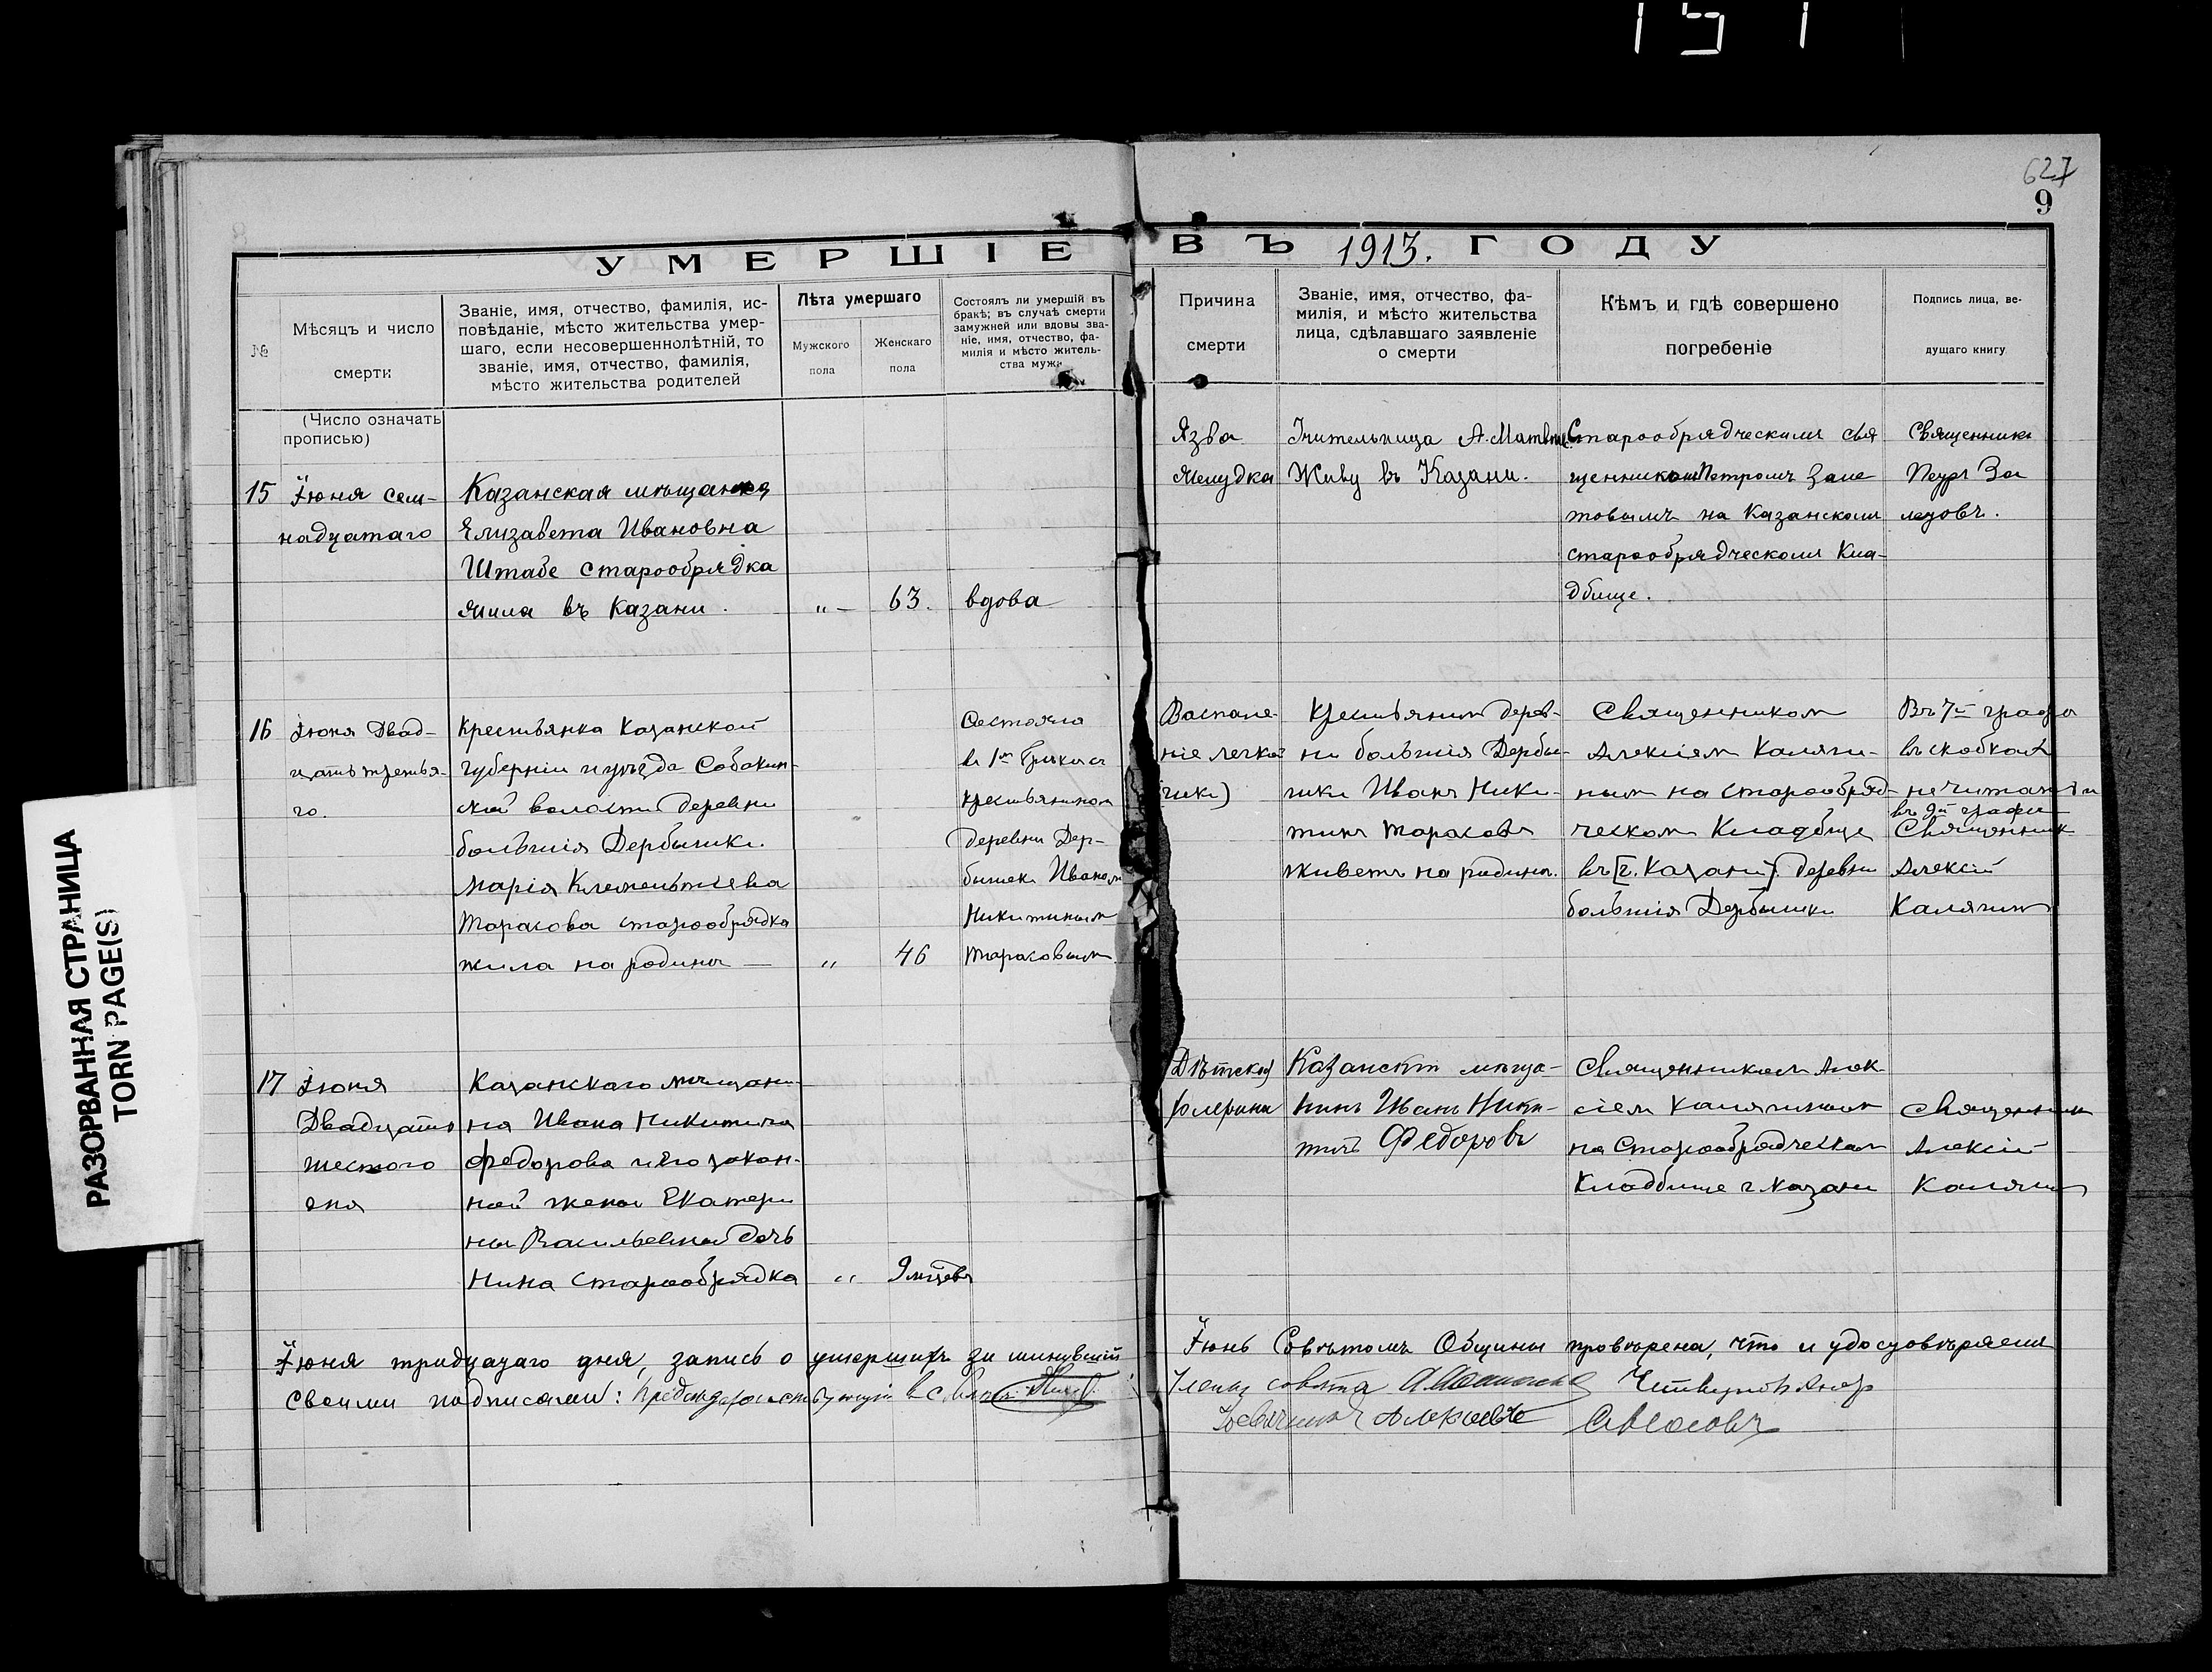 151
627
9
УМЕРШІЕ ВЪ 1913. ГОДУ
№
Мѣсяцъ и число
смерти
Званіе, имя, отчество, фамилія, ис-
повѣданіе, мѣсто жительства умер-
шаго, если несовершеннолѣтній, то
званіе, имя, отчество, фамилія,
мѣсто жительства родителей
Лѣта умершаго
Мужского
пола
Женскаго
пола
Состоялъ ли умершій въ
бракѣ; въ случаѣ смерти
замужней или вдовы зва-
ніе, имя, отчество, фа-
милія и мѣсто житель-
ства мужа
Причина
смерти
Званіе, имя, отчество, фа-
милія, и мѣсто жительства
лица, сдѣлавшаго заявленіе
о смерти
Кѣмъ и гдѣ совершено
погребеніе
Подпись лица, ве-
дущаго книгу
(Число означать
прописью)
15
Іюня сем-
надцатаго
Казанская мѣщанка
Елизавета Ивановна
Штабе старообрядка
жила въ Казани.
„ —
63.
вдова
Язва
желудка
Учительница А.
Живу въ Казани.
Старообрядческимъ свя
щенникомъ Петромъ Зале
товымъ на Казанскомъ
старообрядческомъ Кла-
дбище.
Священникъ
Петръ За
летовъ.
16
Іюня Двад-
цать третья-
го.
Крестьянка Казанской
губерніи и уѣзда Собакин-
ской волости деревни
большія Дербышки.
Марія Клементьева
Тарасова старообрядка
жила на родинѣ —
„
46
Состояла
въ 1мъ бракѣ съ
крестьяниномъ
деревни Дер-
бышекъ Иваномъ
Никитинымъ
Тарасовымъ
Воспале-
ніе легко
Крестьянинъ дерев-
ни большія Дербы-
шки Иванъ Ники-
тинъ Тарасовъ
живетъ на родинѣ.
Священникомъ
Алексіемъ Каляги-
нымъ на старообряд-
ческомъ Кладбище
въ [г. Казани] деревни
большія Дербышки
Въ 7й графѣ
въ скобкахъ
не читать
въ 9й графѣ
Священник
Алексій
Калягинъ
17
Іюня
Двадцать
шестого
дня
Казанскаго мѣщани-
на Ивана Никитича
Федорова и его закон-
ной жены Екатери
ны Васильевной дочь
Нина старообрядка
„
9 мѣсяцев
Дѣтской
холерины
Казанскій мѣща-
нинъ Иванъ Ники-
тичъ Федоровъ
Священникомъ Алек
сіем Калягинымъ
на Старообрядческом
Кладбище г. Казани
Священник
Алексій
Калягин
Іюня тридцатаго дня, запись о умершихъ за минувшій Іюнь Совѣтомъ Общины провѣрена, что и удостовѣряемъ
своими подписами: Председательствующій въ Совѣтѣ
Члены совѣта
РАЗОРВАННАЯ СТРАНИЦА
TORN PAGE(S)